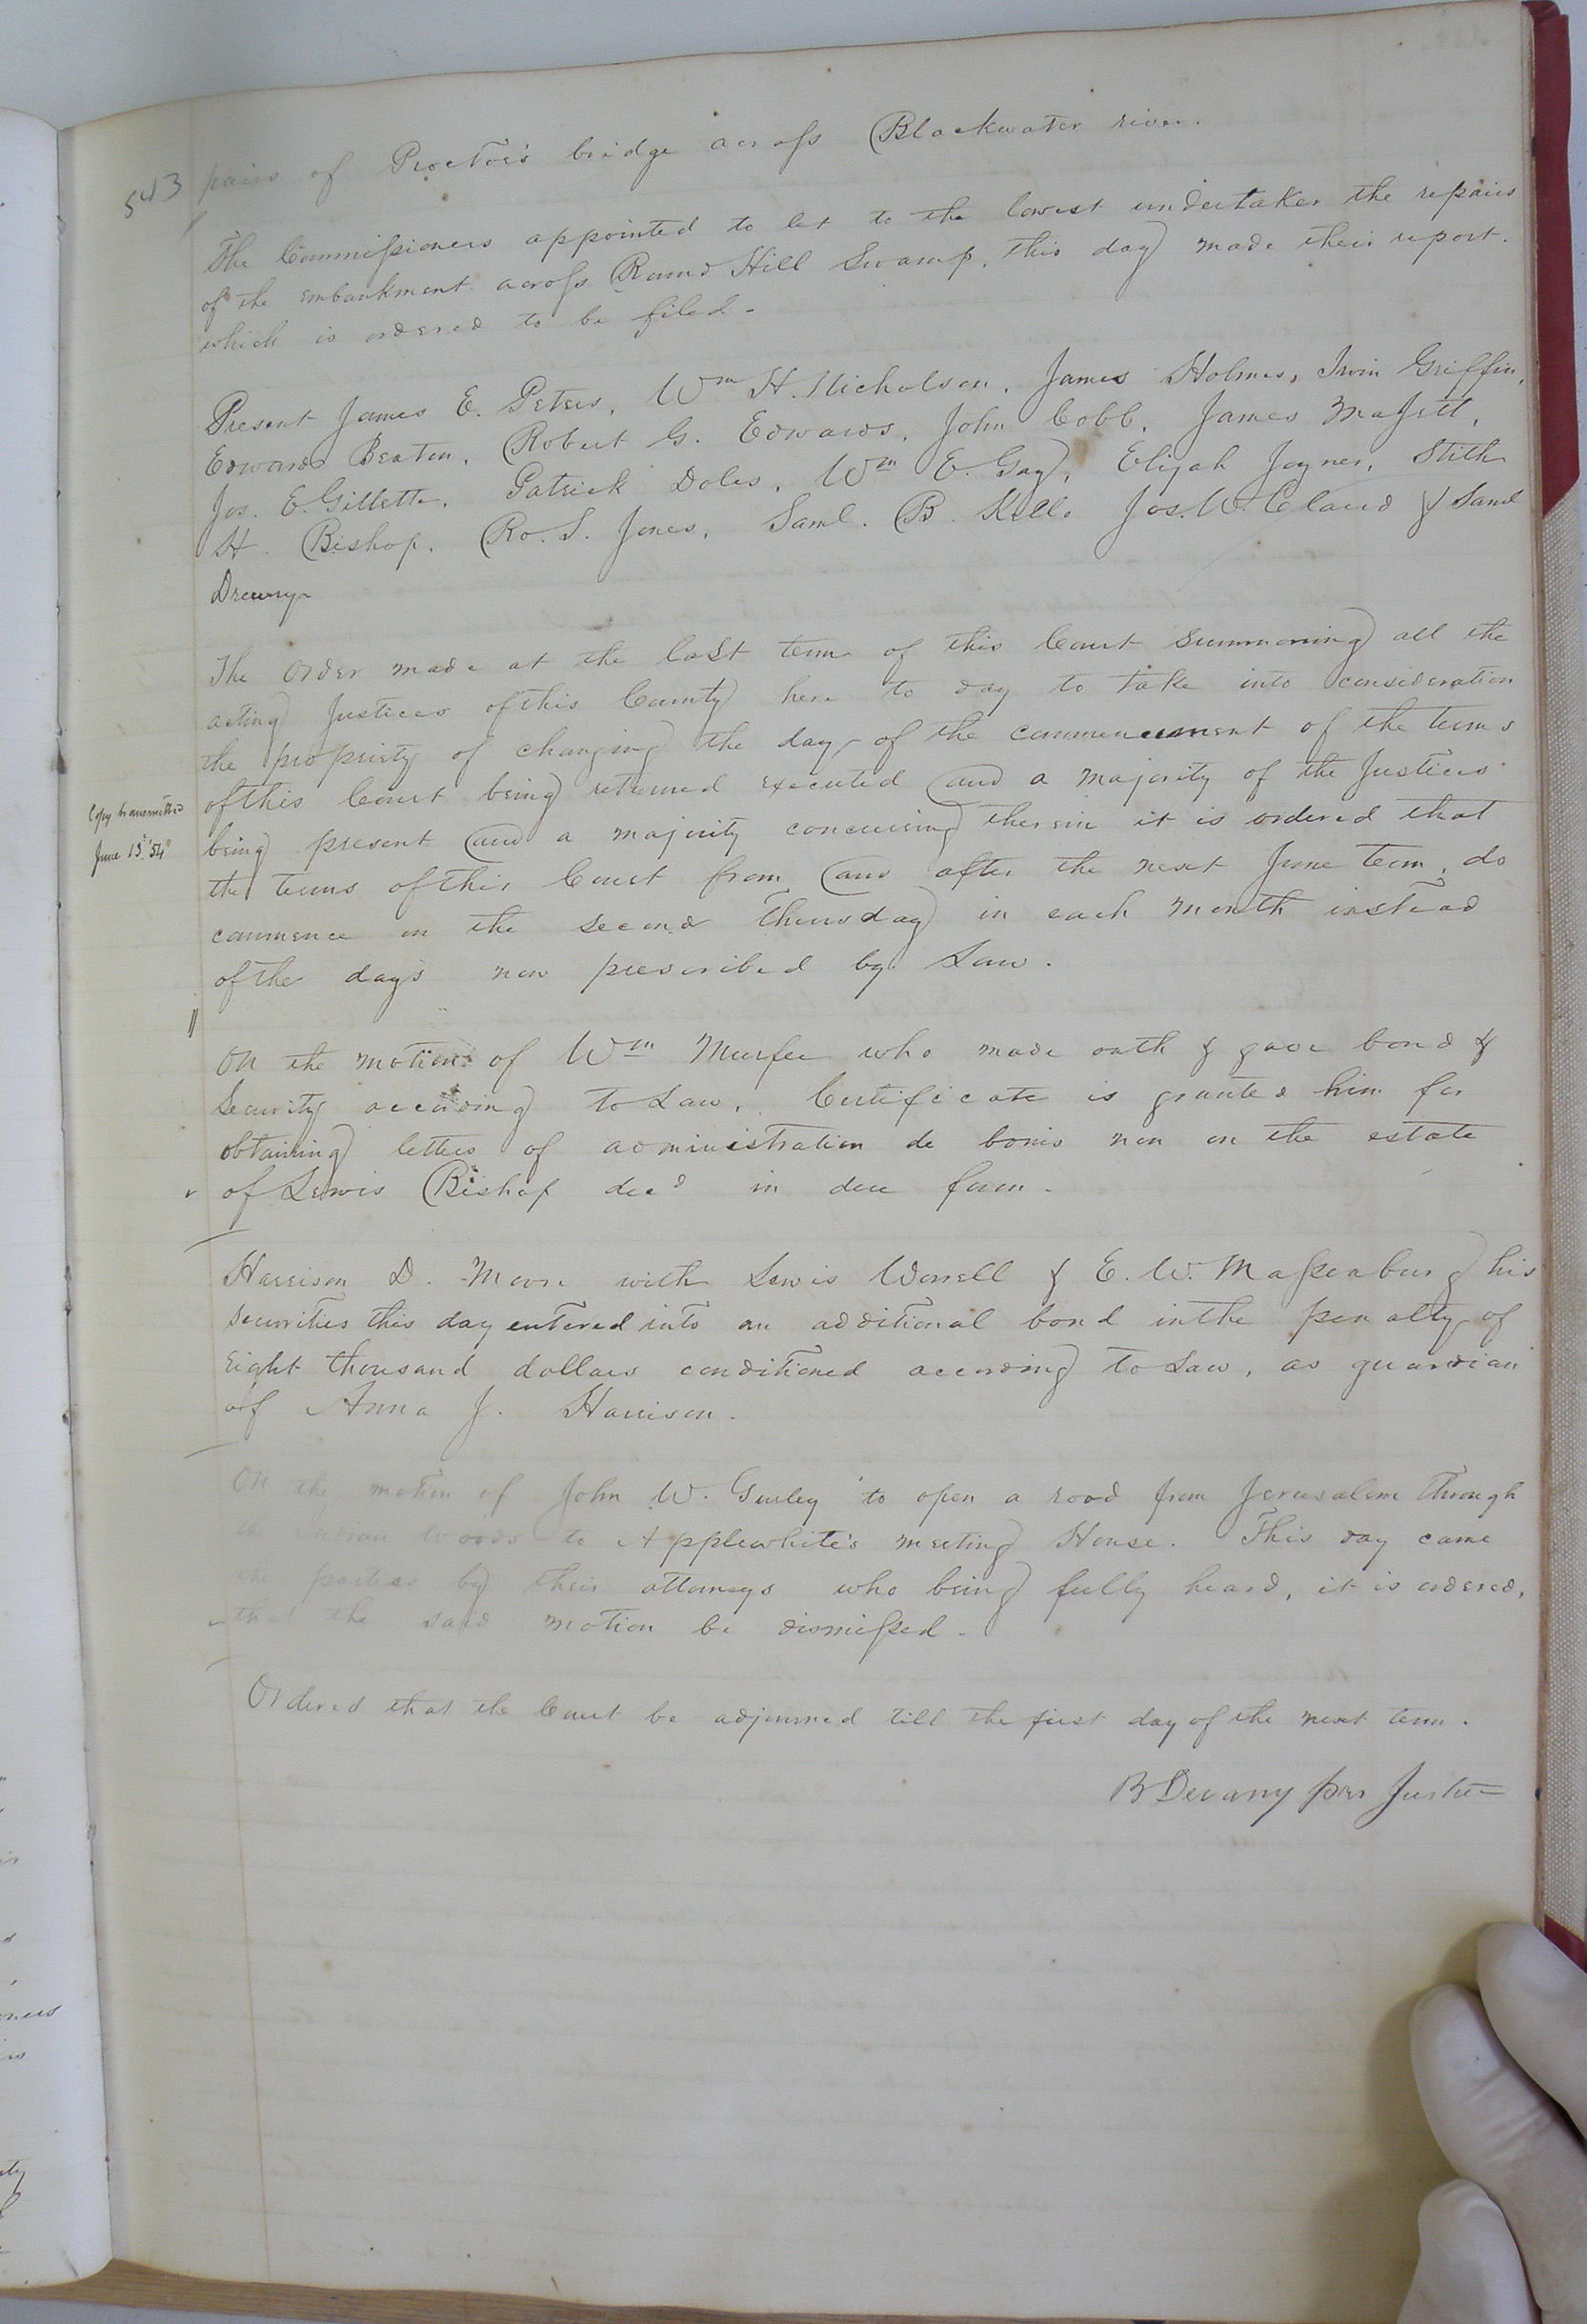 543 pairs of Proctor's bridge across Blackwater river.
The Commissioners appointed to let to the lowest undertaker the repairs
of the embankment across Round Hill Swamp, this day made their report.
which is ordered to be filed -
Present James E. Peters, Wm H. Nicholson, James Holmes, Irvin Griffin,
Edward Beaton, Robert G. Edwards, John Cobb, James Majett,
Jos. E. Gillette, Patrick Doles, Wm E. Gay, Elijah Joyner, Stith
H. Bishop, Ro. S. Jones, Saml. B. Kello Jos. W. Claud & Saml
Drewry
The Order made at the last term of this Court summoning all the
acting Justices of this County here to day to take into consideration
the propriety of changing the day of the commencement of the terms
of this Court being returned executed and a majority of the Justices
Copy transmitted
June 15 '54
being present and a majority concurring therein it is ordered that
the terms of this Court from and after the next June term, do
commence on the second Thursday in each month instead
of the days now prescribed by Law.
On the motion of Wm Murfee who made oath & gave bond &
Security according to Law, Certificate is granted him for
obtaining letters of administration de bonis non on the estate
of Lewis Bishop decd in due form -
Harrison D. Moore with Lewis Worrell & E. W. Massenburg his
securities this day entered into an additional bond in the penalty of
eight thousand dollars conditioned according to Law, as guardian
of Anna J. Harrison.
On the motion of John W. Gurley to open a road from Jerusalem through
the Indian Woods to Applewhite's meeting House. This day came
the parties by their attorneys who being fully heard, it is ordered,
that the said motion be dismissed -
Ordered that the Court be adjourned till the first day of the next term.
B Devany pres Justice